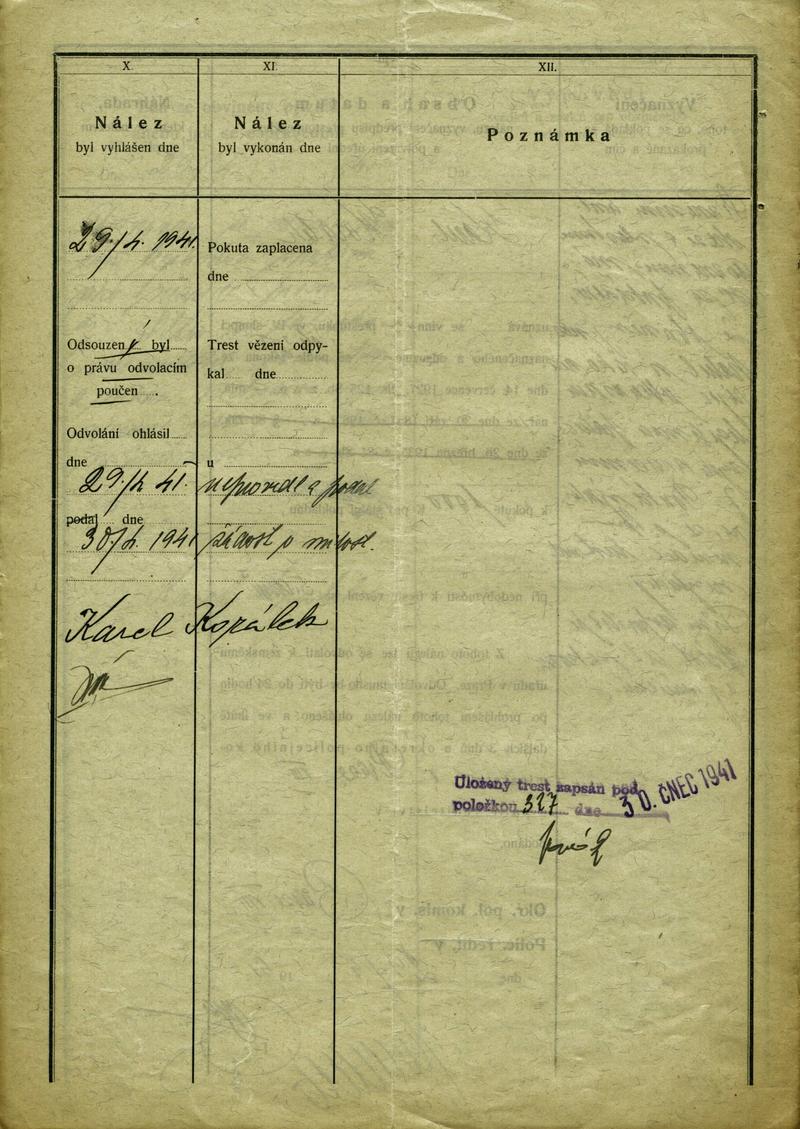 X.
XI.
XII.
Nález
byl vyhlášen dne
Nález
byl vykonán dne
Poznámka
29./4. 1941.
Pokuta zaplacena
dne
Odsouzený byl
o právu odvolacím
poučen .
Trest vězení odpy-
kal dne
Odvolání ohlásil
dne
u
29./4. 41.
a podal
podal dne
30./4. 1941 žádost o milost.
Karel Korálek
Uložený trest zapsán pod
položkou 327 dne 30. ČNEC 1941